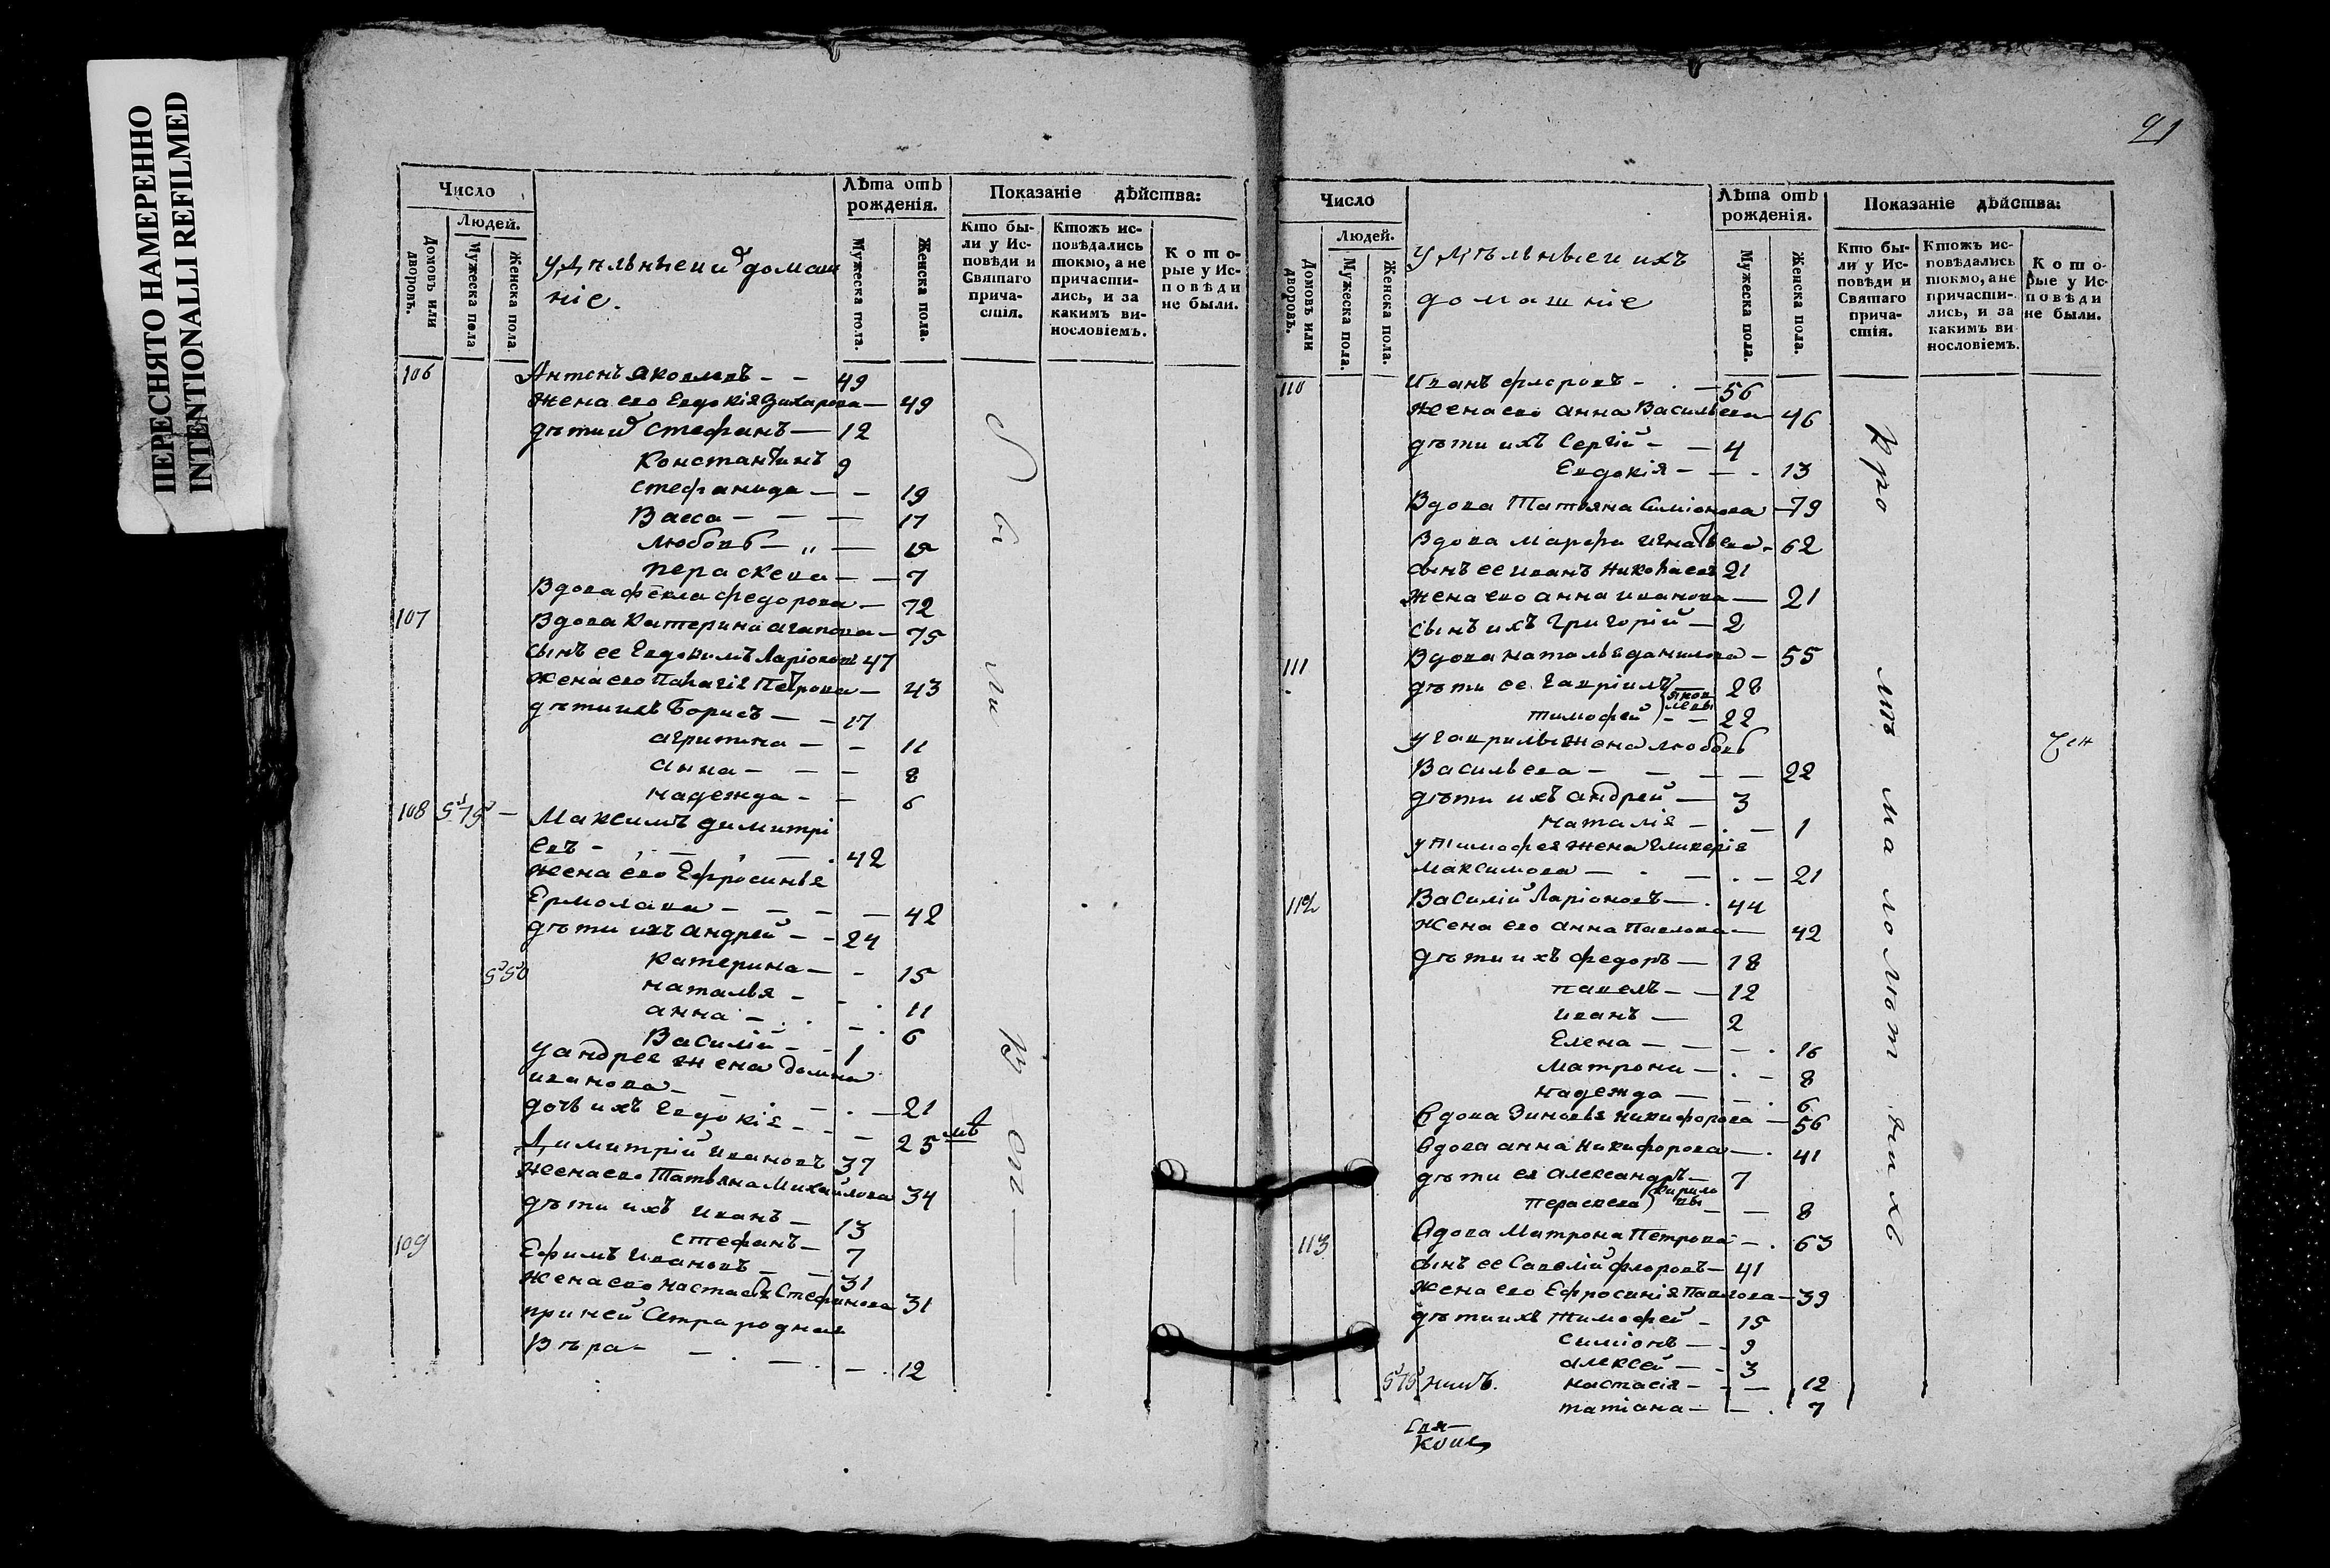 ПЕРЕСНЯТО НАМЕРЕННО
INTENTIONALLI REFILMED
Число
Людей.
Домовъ или дворовъ.
Мужеска пола
Женска пола.
Удѣльныеи домаш
ніе.
Лѣта отъ рожденія.
Мужеска пола.
Женска пола.
Показаніе дѣйства:
Кто бы-
ли у Ис-
повѣди и
Святаго
прича-
стія.
Ктожъ ис-
повѣдались
токмо, а не
причасти-
лись, и за
какимъ ви-
нословіемъ.
Кото-
рые у Ис-
повѣди
не были.
106 Антонъ Яковлевъ - - 49
жена его Евдокія Захарова — 49
дѣти Стефанъ — 12
Константинъ 9
Стефанида — - 19
Васса - — — 17
Любовь — „ —
Параскева — — 7
Вдова Фекла Федорова — 72
107 Вдова Катерина Агапова — 75
сынъ ее Евдокимъ Ларіоновъ 47
жена его Палагія Петрова — 43
дѣти ихъ Борисъ — - 17
Агрипина — - 11
Анна - — - 8
Надежда - - 6
108 Максимъ Димитрі
евъ - — — 42
жена его Ефросинья
Ермолаева — — — — 42
дѣти ихъ Андрей — - 24
Катерина — - 15
Наталья - - 11
Анна — 6
Василій - - 1
у Андрея жена Домна
Иванова — 21
дочь ихъ Евдокія - - — 25
Димитрій Ивановъ 37
жена его Татьяна Михайлова 34
дѣти ихъ Иванъ — 13
Стефанъ — 7
109 Ефимъ Ивановъ — 31
жена его Настасья Стефанова 31
при ней Сестра родная
Вѣра - — — — 12
21
Число
Людей.
Домовъ или дворовъ.
Мужеска пола.
Женска пола.
Удѣльныеи ихъ
домашніе
Лѣта отъ рожденія.
Мужеска пола.
Женска пола.
Показаніе дѣйства:
Кто бы-
ли у Ис-
повѣди и
Святаго
прича-
стія.
Ктожъ ис-
повѣдались
токмо, а не
причасти-
лись, и за
какимъ ви-
нословіемъ.
Кото-
рые у Ис-
повѣди
не были.
110 Иванъ Флоровъ - — 56
жена его Анна Васильева 46
дѣти ихъ Сергій - — 4
Евдокія - — - 13
Вдова Татьяна Симіонова — 79
Вдова Марфа Игнатьева - 62
сынъ ее Иванъ Николаевъ 21
жена его Анна Иванова — 21
сынъ ихъ Григорій — 2
111 Вдова Наталья Данилова — 55
дѣти ее Гавріилъ 28
Тимофей Яковлевы - — 22
у Гаврилы жена Любовь
Васильева - — — — 22
дѣти ихъ Андрей — 3
Наталія - — 1
у Тимофея жена Гликерія
Максимова — — — 21
112 Василій Ларіоновъ — 44
жена его Анна Павлова — 42
дѣти ихъ Федоръ — 18
Павелъ — — 12
Иванъ — 2
Елена — — — 16
Матрона — - — 8
Надежда — — 6
Вдова Зиновья Никифорова — 56
Вдова Анна Никифорова — 41
дѣти ея Александръ — 7
Пераскева Кириловы — — 8
113 Вдова Матрона Петрова — 63
сынъ ее Савелій Флоровъ — 41
жена его Ефросинія Павлова — 39
дѣти ихъ Тимофей - 15
Симіонъ — - 9
Алексей — - 3
Настасія - - — 12
Татіана — — 7